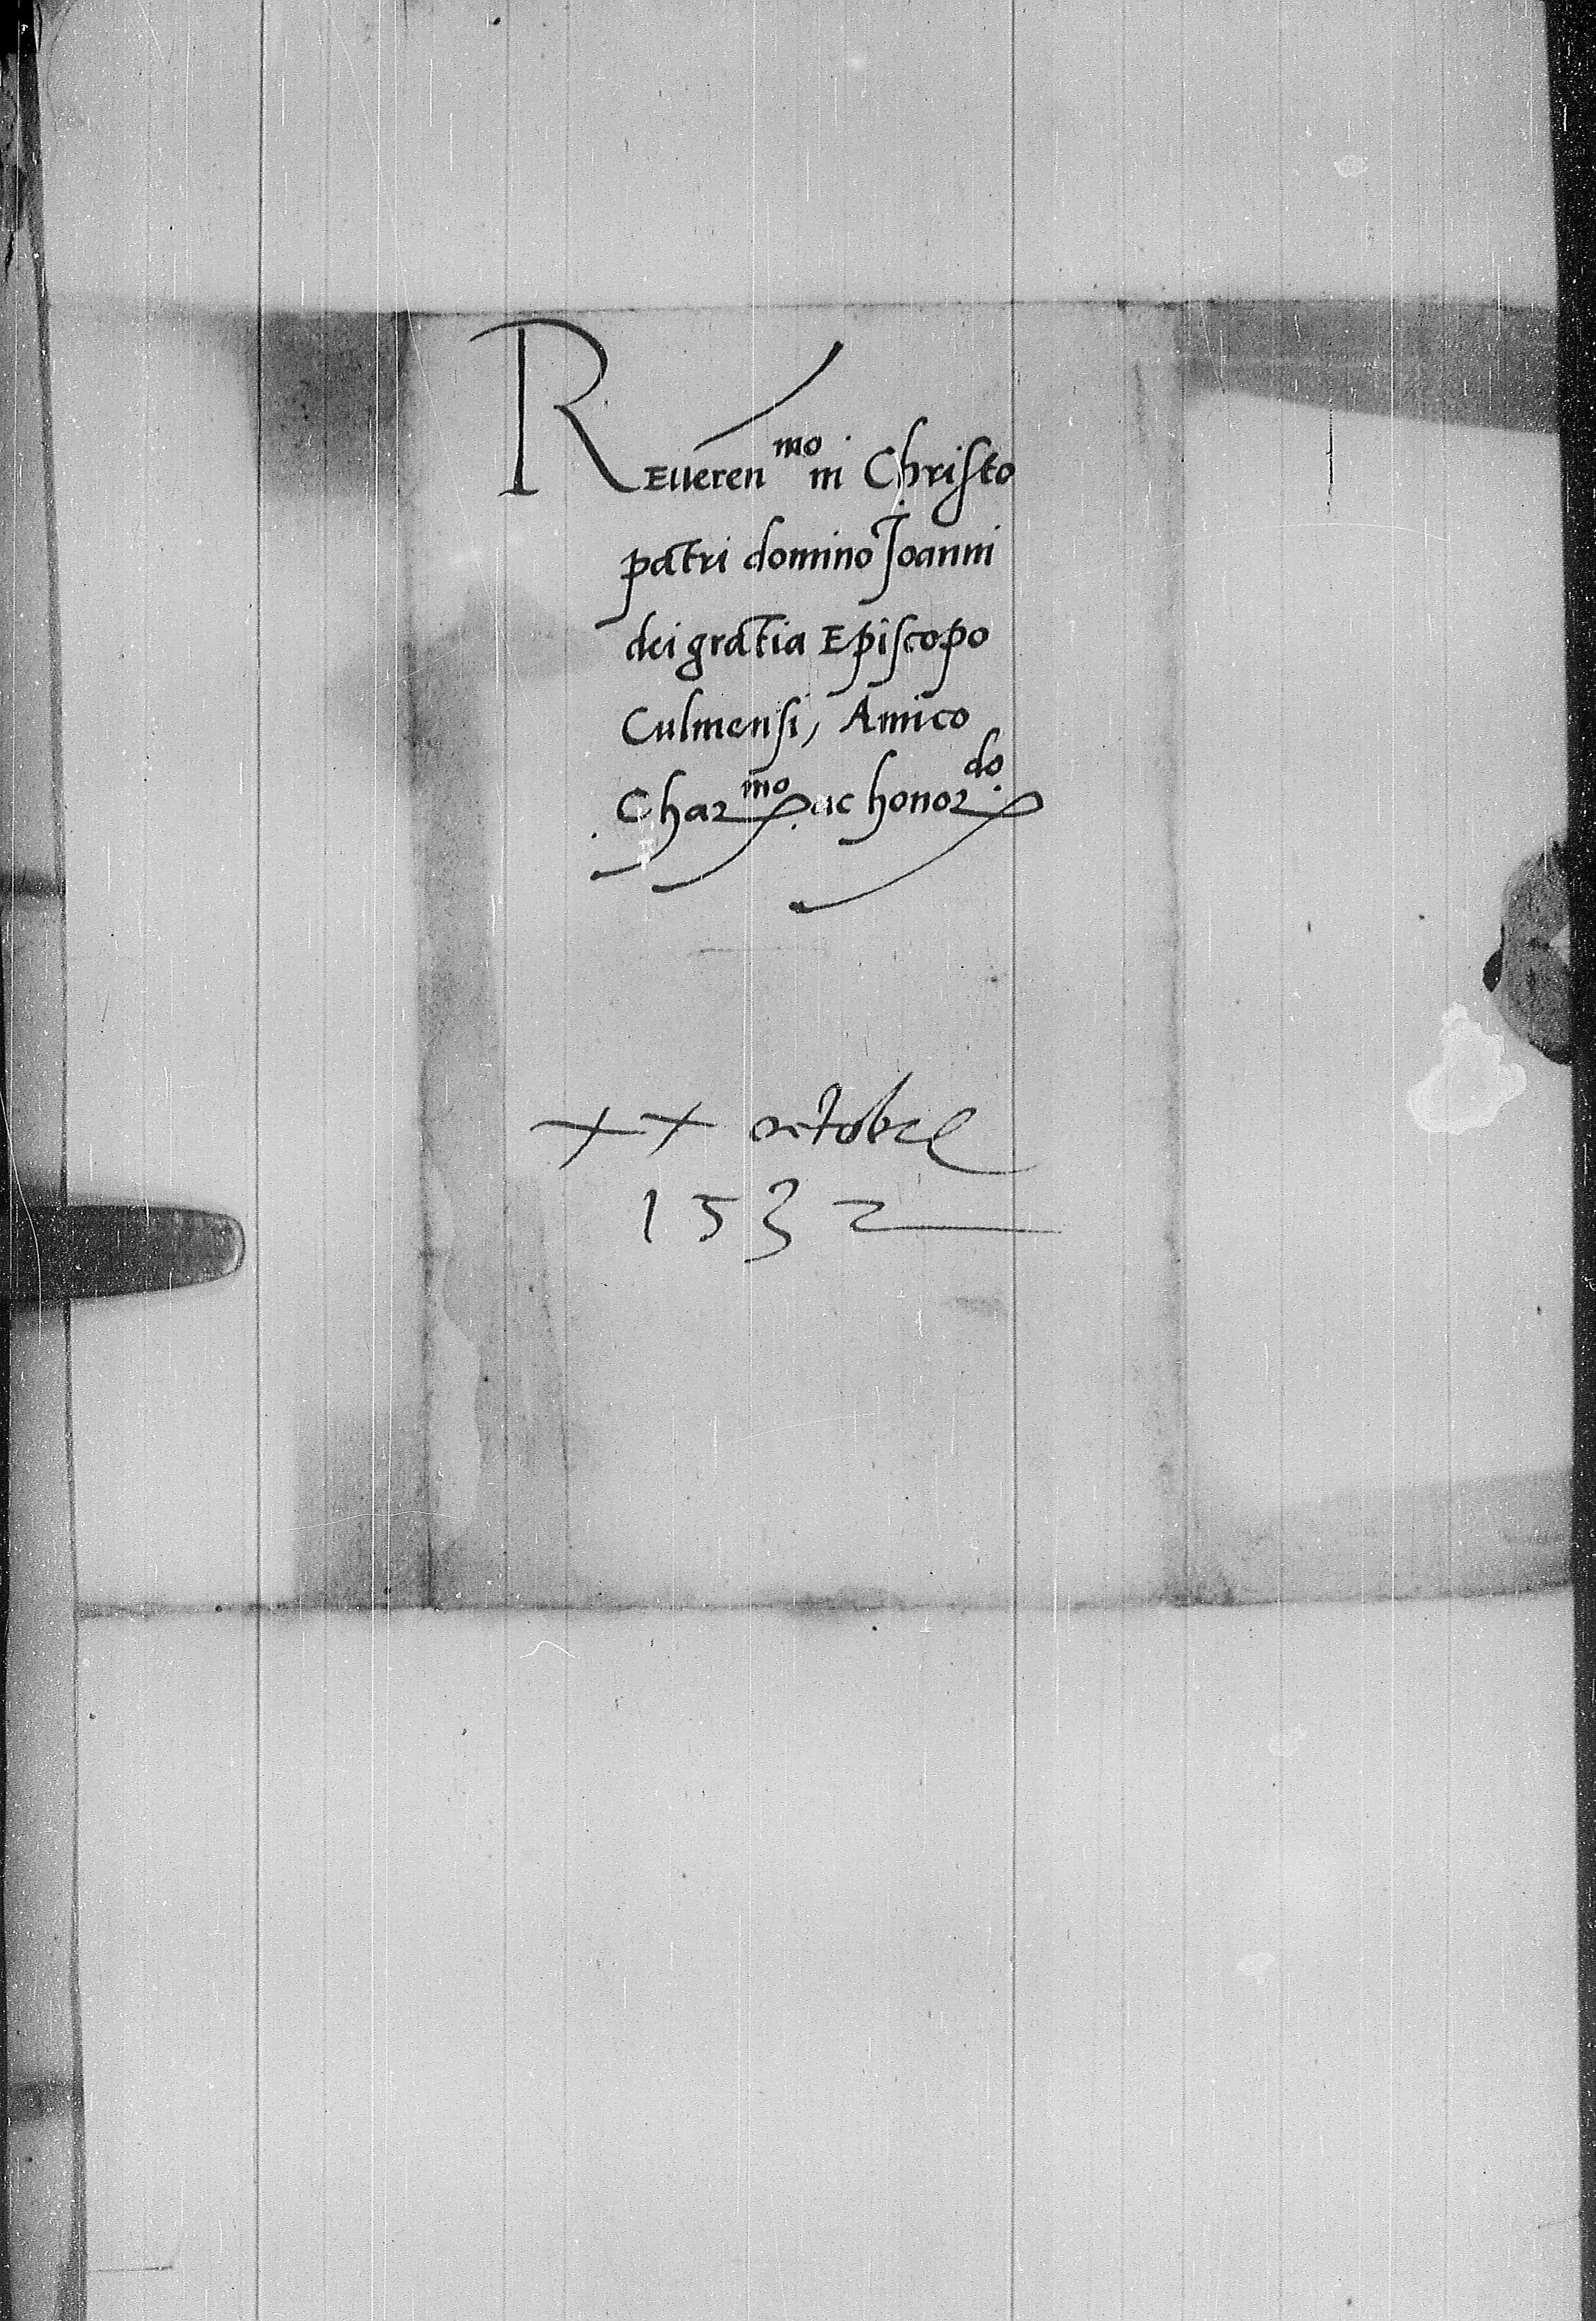 Reueren^mo in Christo
patri domino Joanni
dei gratia Episcopo
Culmensi, Amico
Char^mo. ac honor^do.
xx octobris
1532